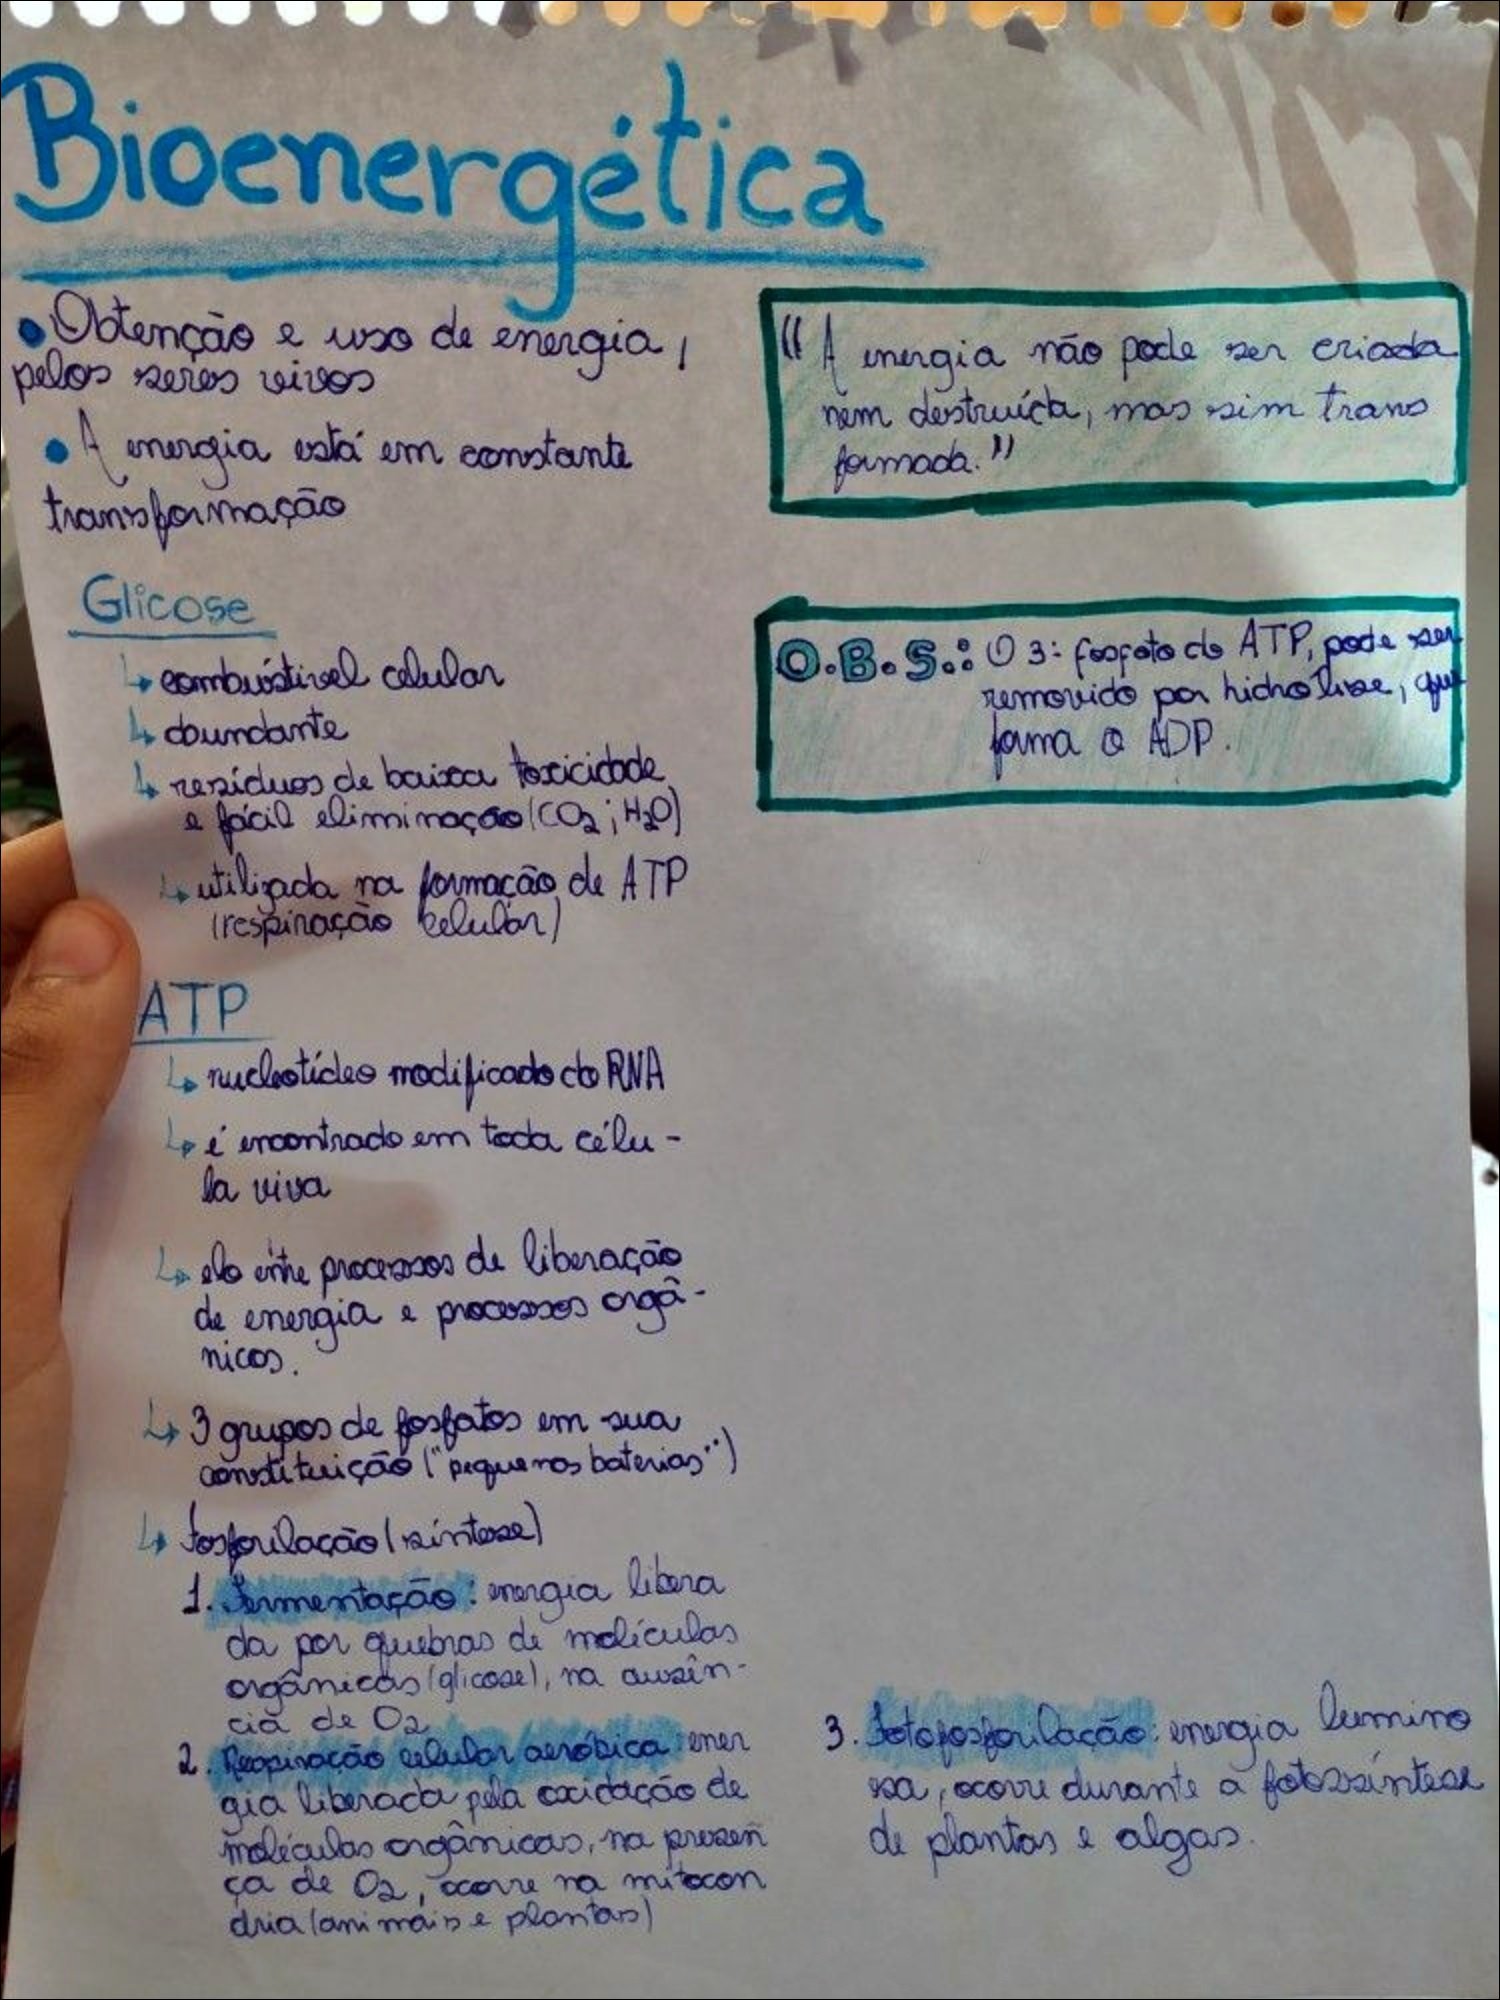 Bioenergética
• Obtenção e uso de energia,
pelos seres vivos
• A energia está em constante
transformação
"A energia não pode ser criada
nem destruída, mas sim trans
formada."
Glicose
↳ combústivel celular
↳ abundante
↳ resíduos de baixa toxicidade
e fácil eliminação (CO2; H2O)
↳ utilizada na formação de ATP
(respiração celular)
O.B.S.: O 3º fosfato do ATP, pode ser
removido por hidrólise, que
forma o ADP.
ATP
↳ nucleotídeo modificado do RNA
↳ é encontrado em toda célu-
la viva
↳ elo entre processos de liberação
de energia e processos orgâ-
nicos.
↳ 3 grupos de fosfatos em sua
constituição ("pequenas baterias")
↳ Fosforilação (síntese)
1. Fermentação: energia libera
da por quebras de moléculas
orgânicas (glicose), na ausên-
cia de O2
2. Respiração celular aeróbica: ener
gia liberada pela oxidação de
moléculas orgânicas, na presen
ça de O2, ocorre na mitocon
dria (animais e plantas)
3. Fotofosforilação: energia lumino
sa, ocorre durante a fotossíntese
de plantas e algas.